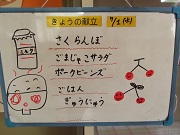 きょうの献立 7/1(水)
ミルク
さくらんぼ
ごまじゃこサラダ
ポークビーンズ
ごはん
ぎゅうにゅう